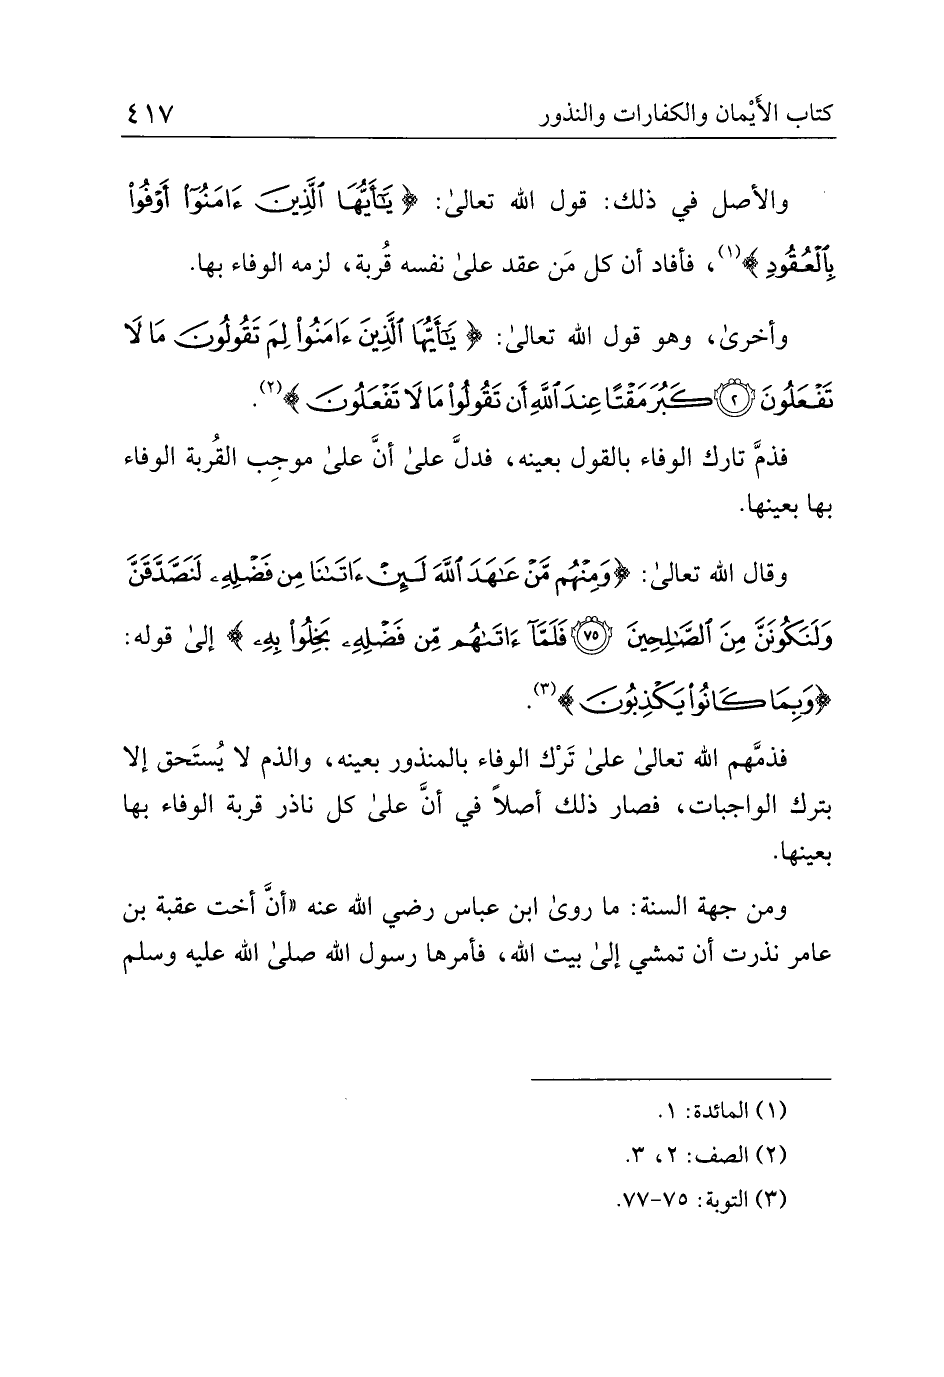 كتاب الأَيْمان والكفارات والنذور ٤١٧
والأصل في ذلك: قول الله تعالىٰ: ﴿ يَٰٓأَيُّهَا ٱلَّذِينَ ءَامَنُوٓا۟ أَوْفُوا۟
بِٱلْعُقُودِ ﴾(١)، فأفاد أن كل مَن عقد علىٰ نفسه قُربة، لزمه الوفاء بها.
وأخرىٰ، وهو قول الله تعالىٰ: ﴿ يَٰٓأَيُّهَا ٱلَّذِينَ ءَامَنُوا۟ لِمَ تَقُولُونَ مَا لَا
تَفْعَلُونَ ٢ كَبُرَ مَقْتًا عِندَ ٱللَّهِ أَن تَقُولُوا۟ مَا لَا تَفْعَلُونَ ﴾(٢).
فذمَّ تارك الوفاء بالقول بعينه، فدلَّ علىٰ أنَّ علىٰ موجِب القُربة الوفاء
بها بعينها.
وقال الله تعالىٰ: ﴿وَمِنْهُم مَّنْ عَٰهَدَ ٱللَّهَ لَئِنْ ءَاتَىٰنَا مِن فَضْلِهِۦ لَنَصَّدَّقَنَّ
وَلَنَكُونَنَّ مِنَ ٱلصَّٰلِحِينَ ٧٥ فَلَمَّآ ءَاتَىٰهُم مِّن فَضْلِهِۦ بَخِلُوا۟ بِهِۦ ﴾ إلىٰ قوله:
﴿وَبِمَا كَانُوا۟ يَكْذِبُونَ ﴾(٣).
فذمَّهم الله تعالىٰ علىٰ تَرْك الوفاء بالمنذور بعينه، والذم لا يُستَحق إلا
بترك الواجبات، فصار ذلك أصلاً في أنَّ علىٰ كل ناذر قربة الوفاء بها
بعينها.
ومن جهة السنة: ما روىٰ ابن عباس رضي الله عنه «أنَّ أخت عقبة بن
عامر نذرت أن تمشي إلىٰ بيت الله، فأمرها رسول الله صلىٰ الله عليه وسلم
(١) المائدة: ١.
(٢) الصف: ٢، ٣.
(٣) التوبة: ٧٥-٧٧.